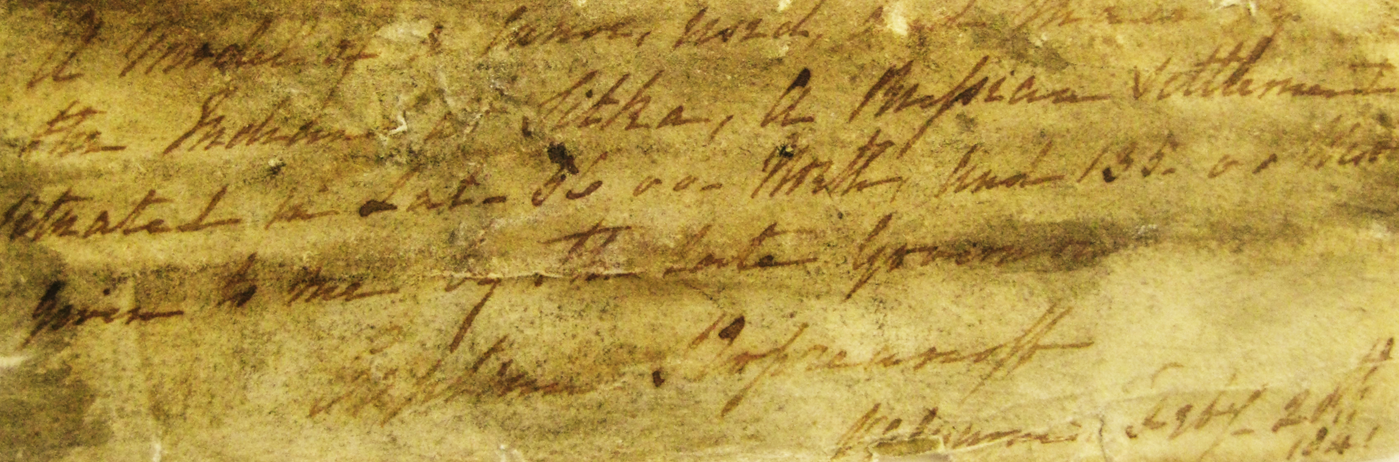 A Model of a Canoe, used, and Made by
the Indians at Sitka, A Russian Settlement
situated in Lat. 56 00 North, and 135. 00 West
Given to me by the Late Governor
Kupreanoff
Feby. 20th